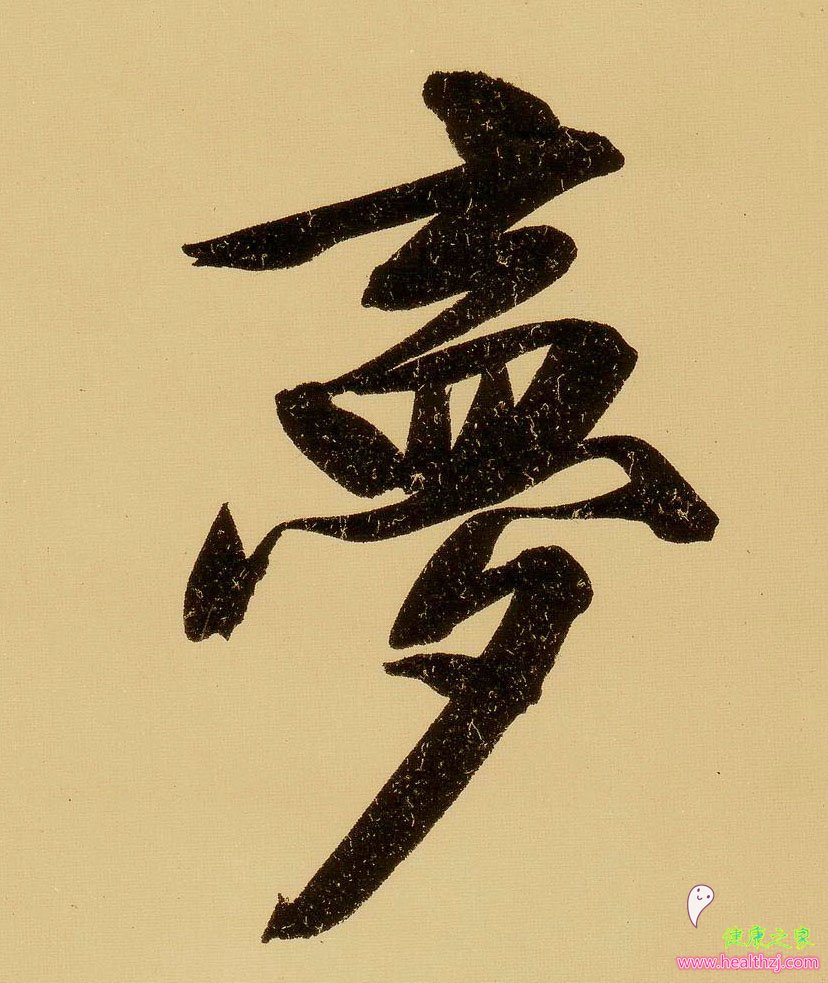 夢
健康之家
www.healthzj.com